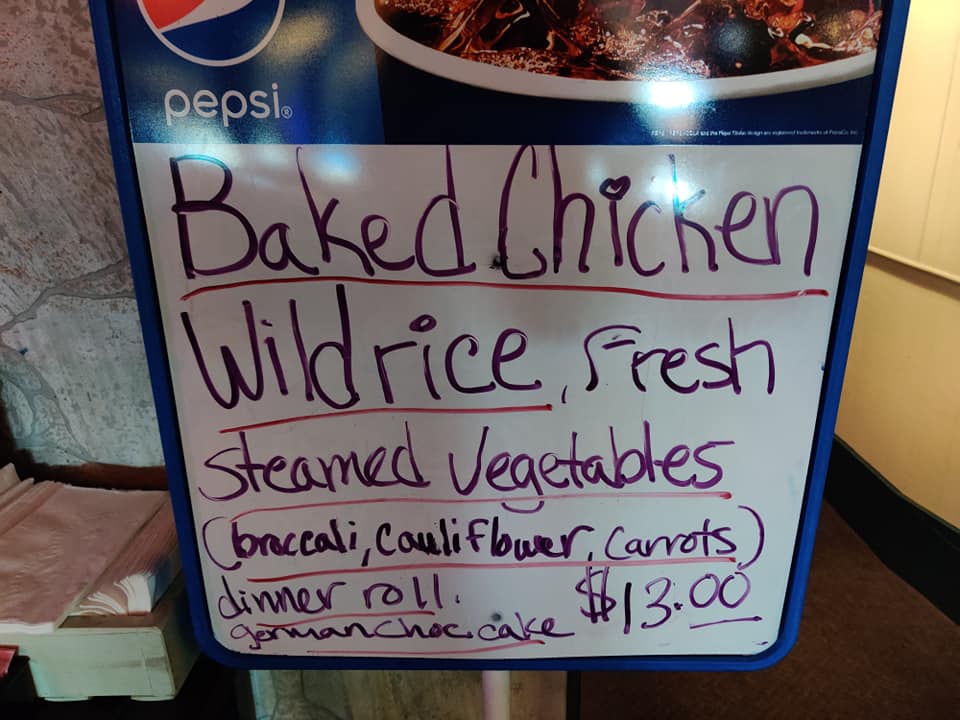 pepsi®
Baked Chicken
Wild rice, Fresh
Steamed Vegetables
(broccali, Cauliflower, Carrots)
dinner roll. $13.00
german choc. cake